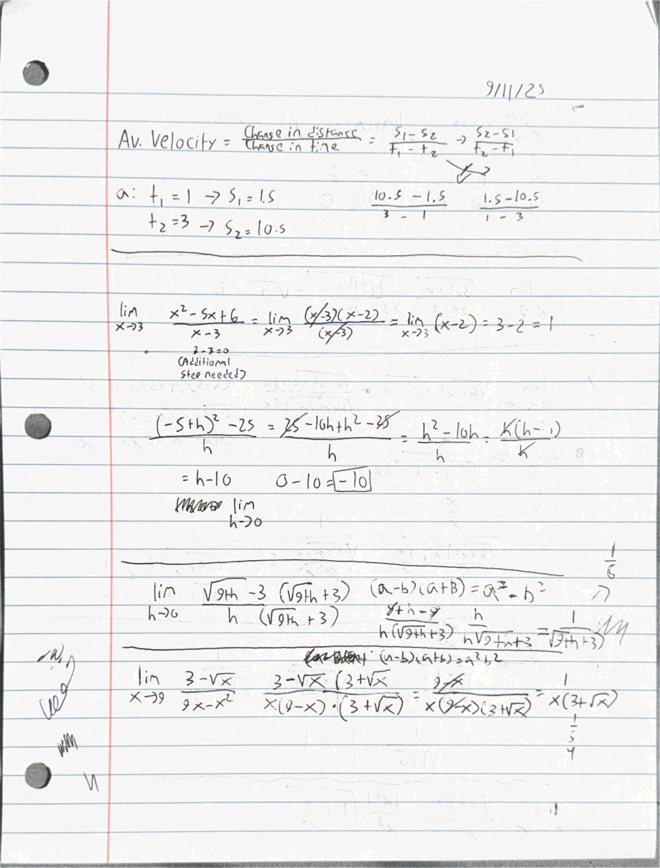 9/11/25
Av. Velocity = Change in distance / Change in time = S₁-S₂ / t₁-t₂ → S₂-S₁ / t₂-t₁
a: t₁ = 1 → S₁ = 1.5 10.5 - 1.5 / 3 - 1 1.5 - 10.5 / 1 - 3
t₂ = 3 → S₂ = 10.5
lim x→3 x² - 5x + 6 / x - 3 = lim x→3 (x-3)(x-2) / (x-3) = lim x→3 (x-2) = 3-2 = 1
3-3=0
(Additional
step needed)
(-5+h)² - 25 / h = 25 - 10h + h² - 25 / h = h² - 10h / h = h(h- ) / h
= h-10 0-10 = -10
lim h→0
1/6
lim h→0 √9+h - 3 / h (√9+h + 3) / (√9+h + 3) (a-b)(a+b) = a² - b²
9+h-9 / h(√9+h + 3) h / h√9+h + 3 = 1 / (√9+h + 3)
(a-b)(a+b) = a² b²
lim x→9 3-√x / 9x-x² 3-√x / x(9-x) · (3+√x / (3+√x) = 9-x / x(9-x)(3+√x) = 1 / x(3+√x)
1
5
4